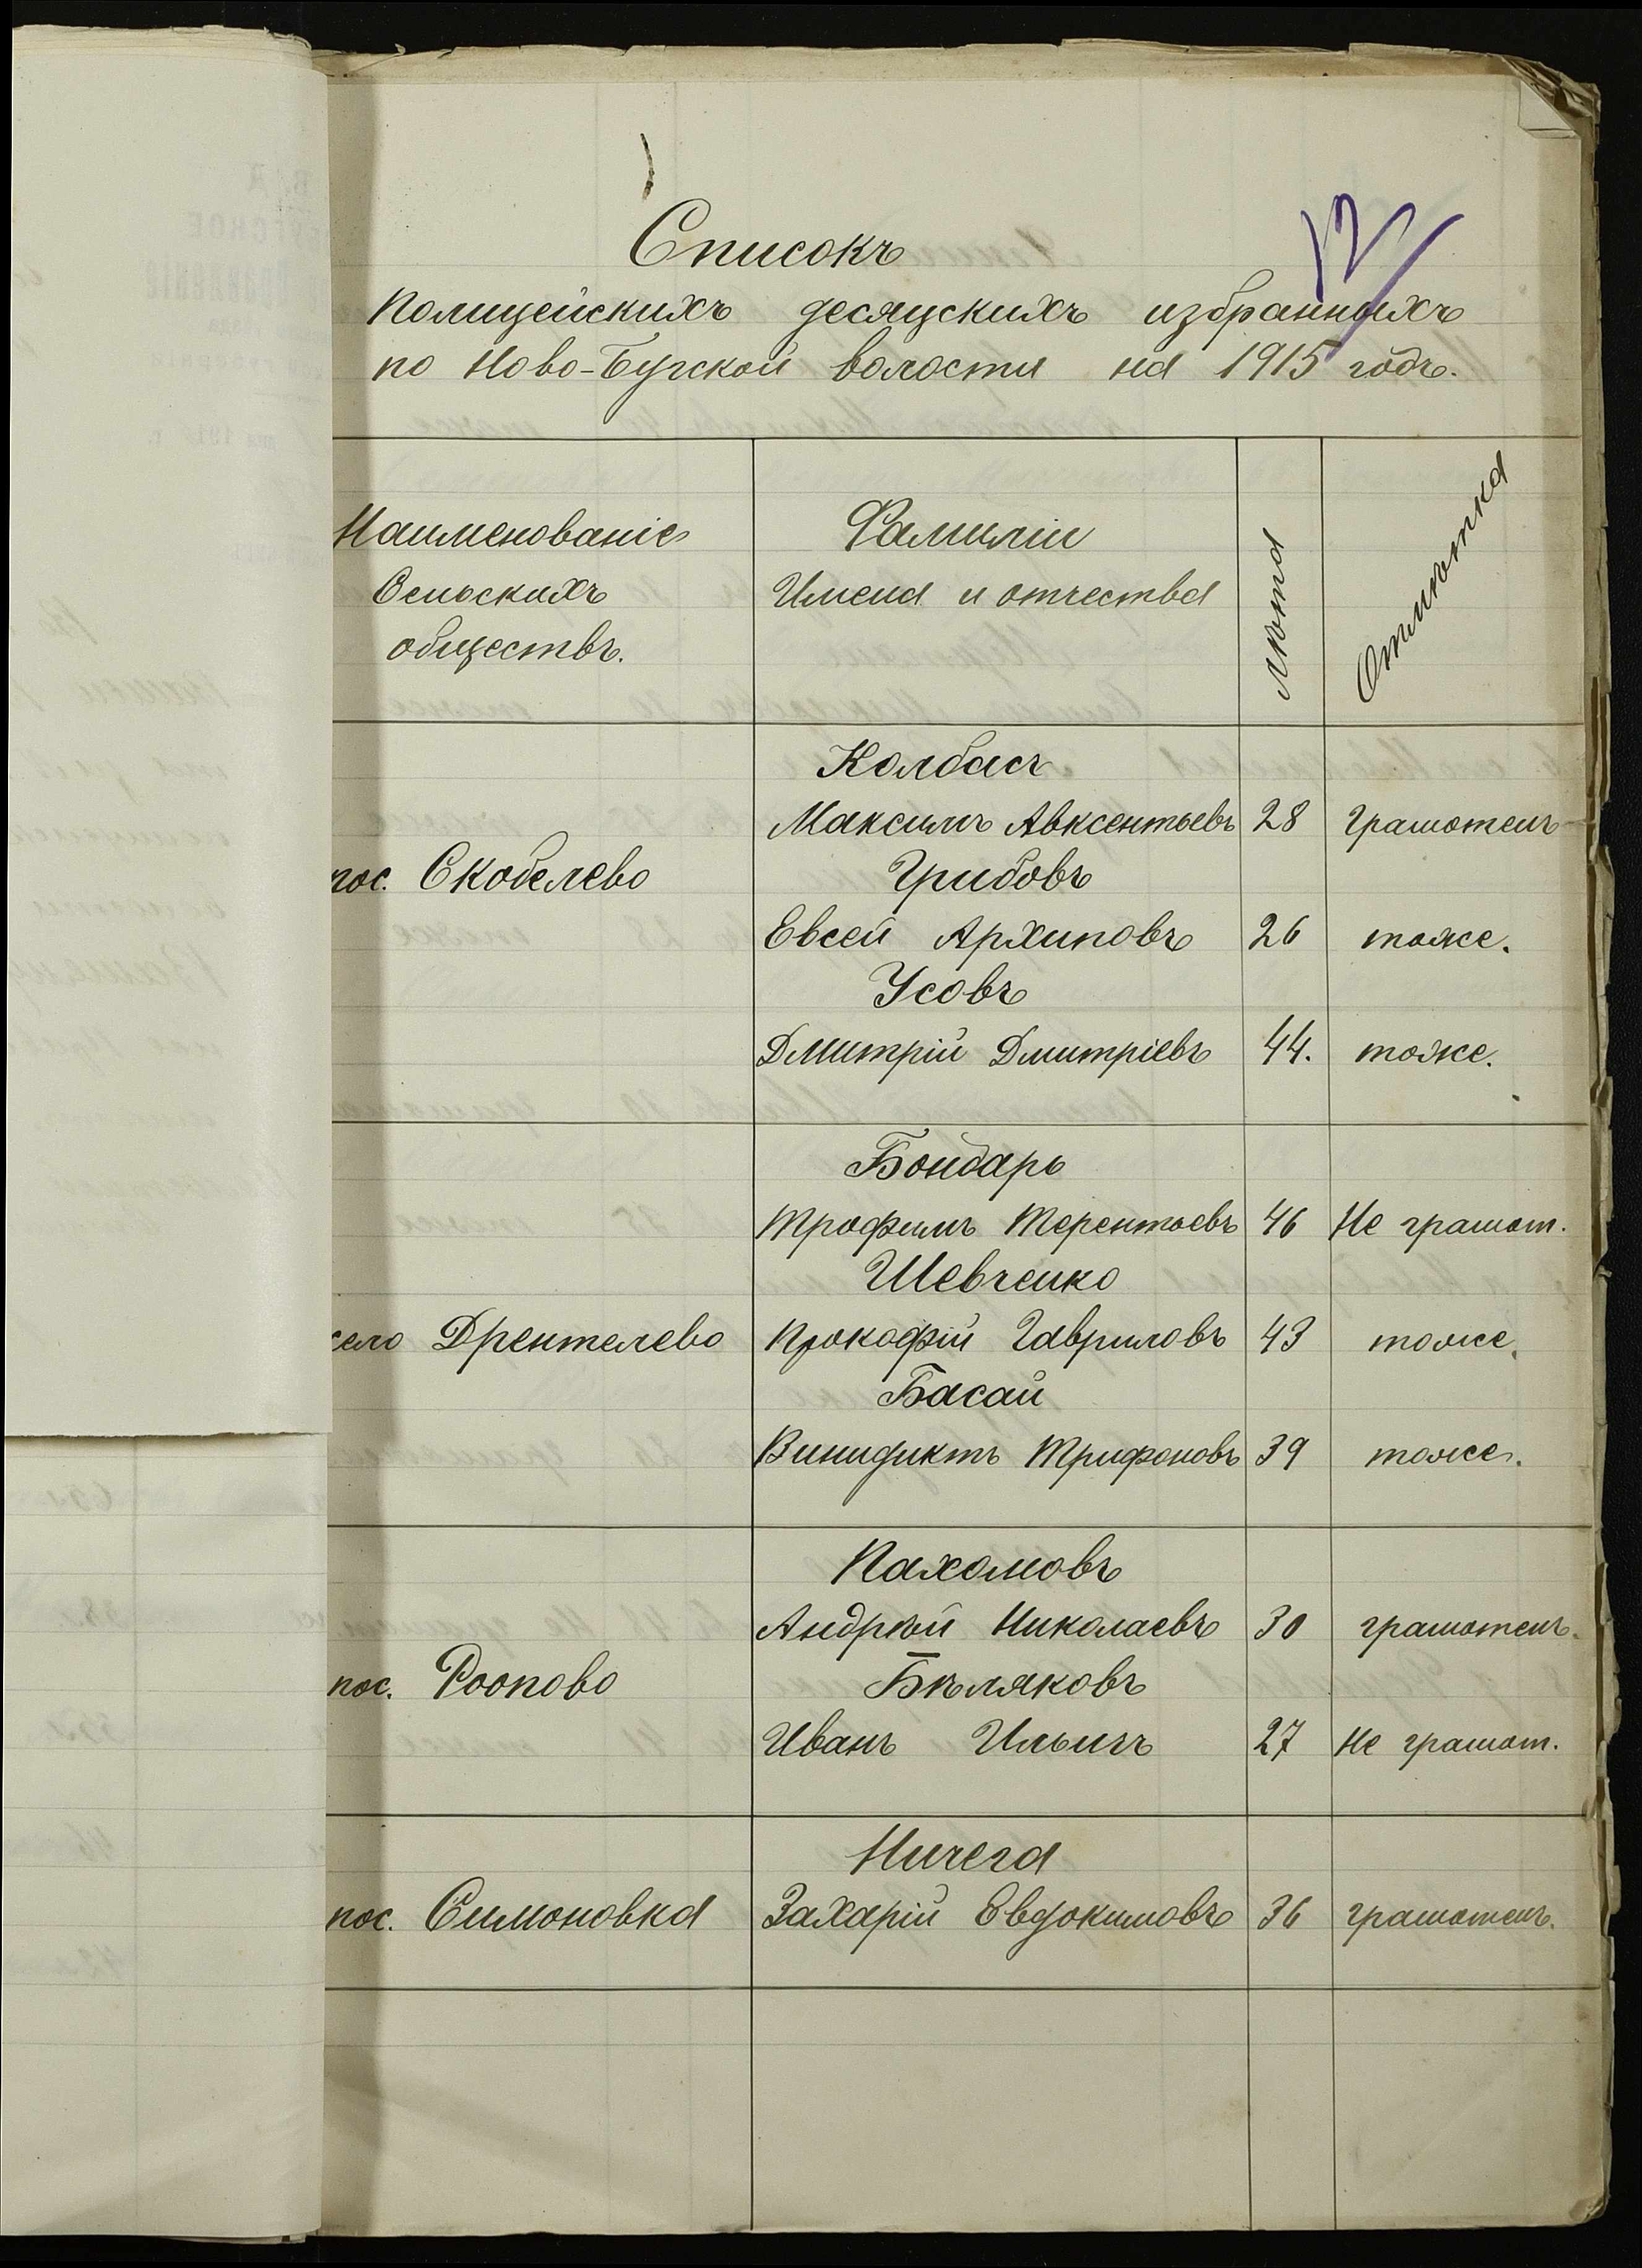 Списокъ
Полицейскихъ десяцскихъ избранныхъ
по Ново-Бугской волости на 1915 годъ.
Наименованіе
Сельскихъ
обществъ.
Фамиліи
Имена и отчества
Лѣта
Отмѣтка
Колбасъ
Максимъ Авксентьевъ 28 Грамотенъ
пос. Скобелево Грибовъ
Евсей Архиповъ 26 тоже.
Усовъ
Дмитрій Дмитріевъ 44. тоже.
Бондарь
Трофимъ Терентьевъ 46 Не грамот.
Шевченко
село Дрентелево Прокофій Гавриловъ 43 тоже.
Басай
Винидиктъ Трифоновъ 39 тоже.
Пахомовъ
Андрѣй Николаевъ 30 грамотенъ.
пос. Роопово Бѣляковъ
Иванъ Ильичъ 27 Не грамот.
Ничега
пос. Симоновка Захарій Евдокимовъ 36 грамотенъ.